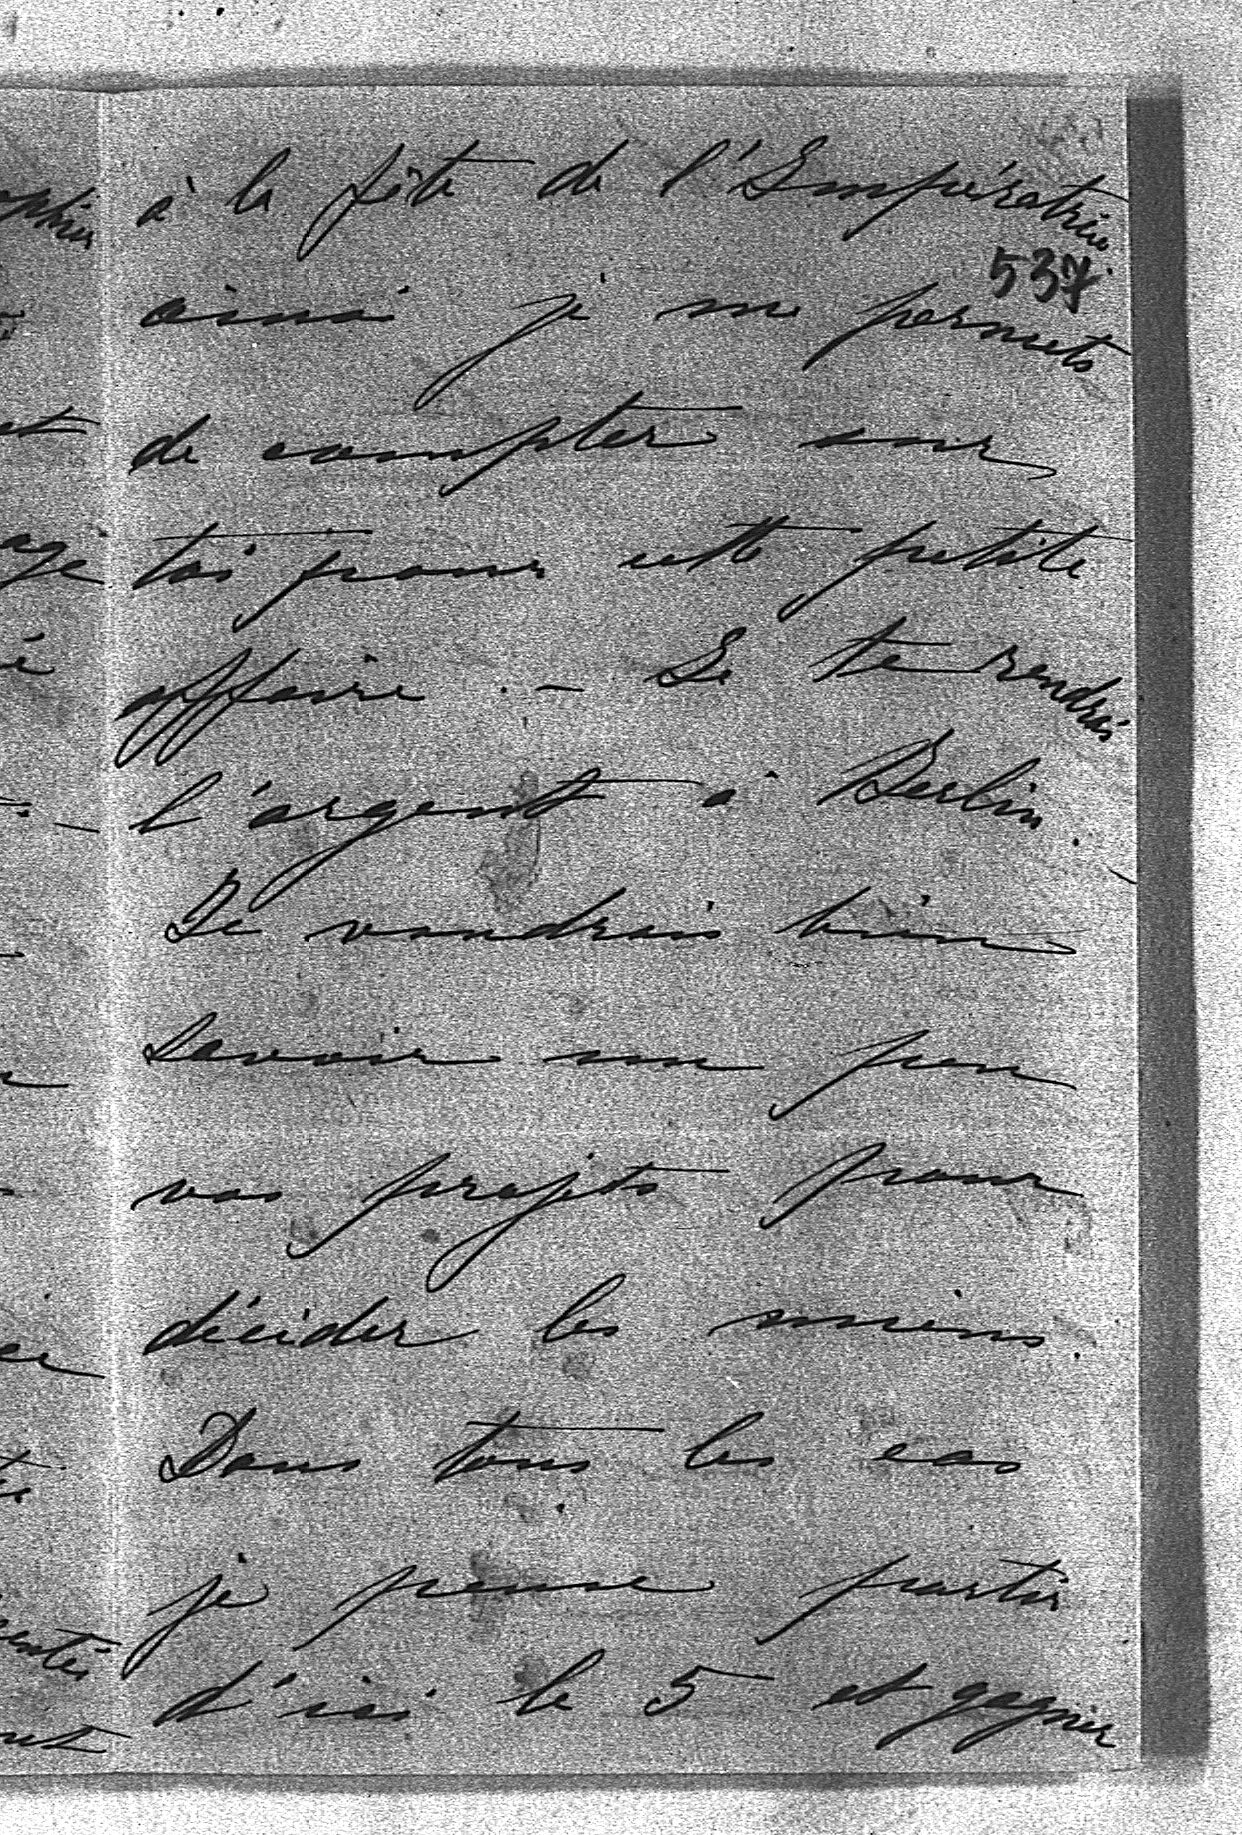 à la fête de l'Impératrice
537
ainsi je me permets
de compter sur
toi pour cette petite
affaire. — Je te rendrai
l'argent à Berlin. —
Je voudrais bien
savoir un peu
vos projets pour
décider les miens.
Dans tous les cas
je pense partir
d'ici le 5 et gagner